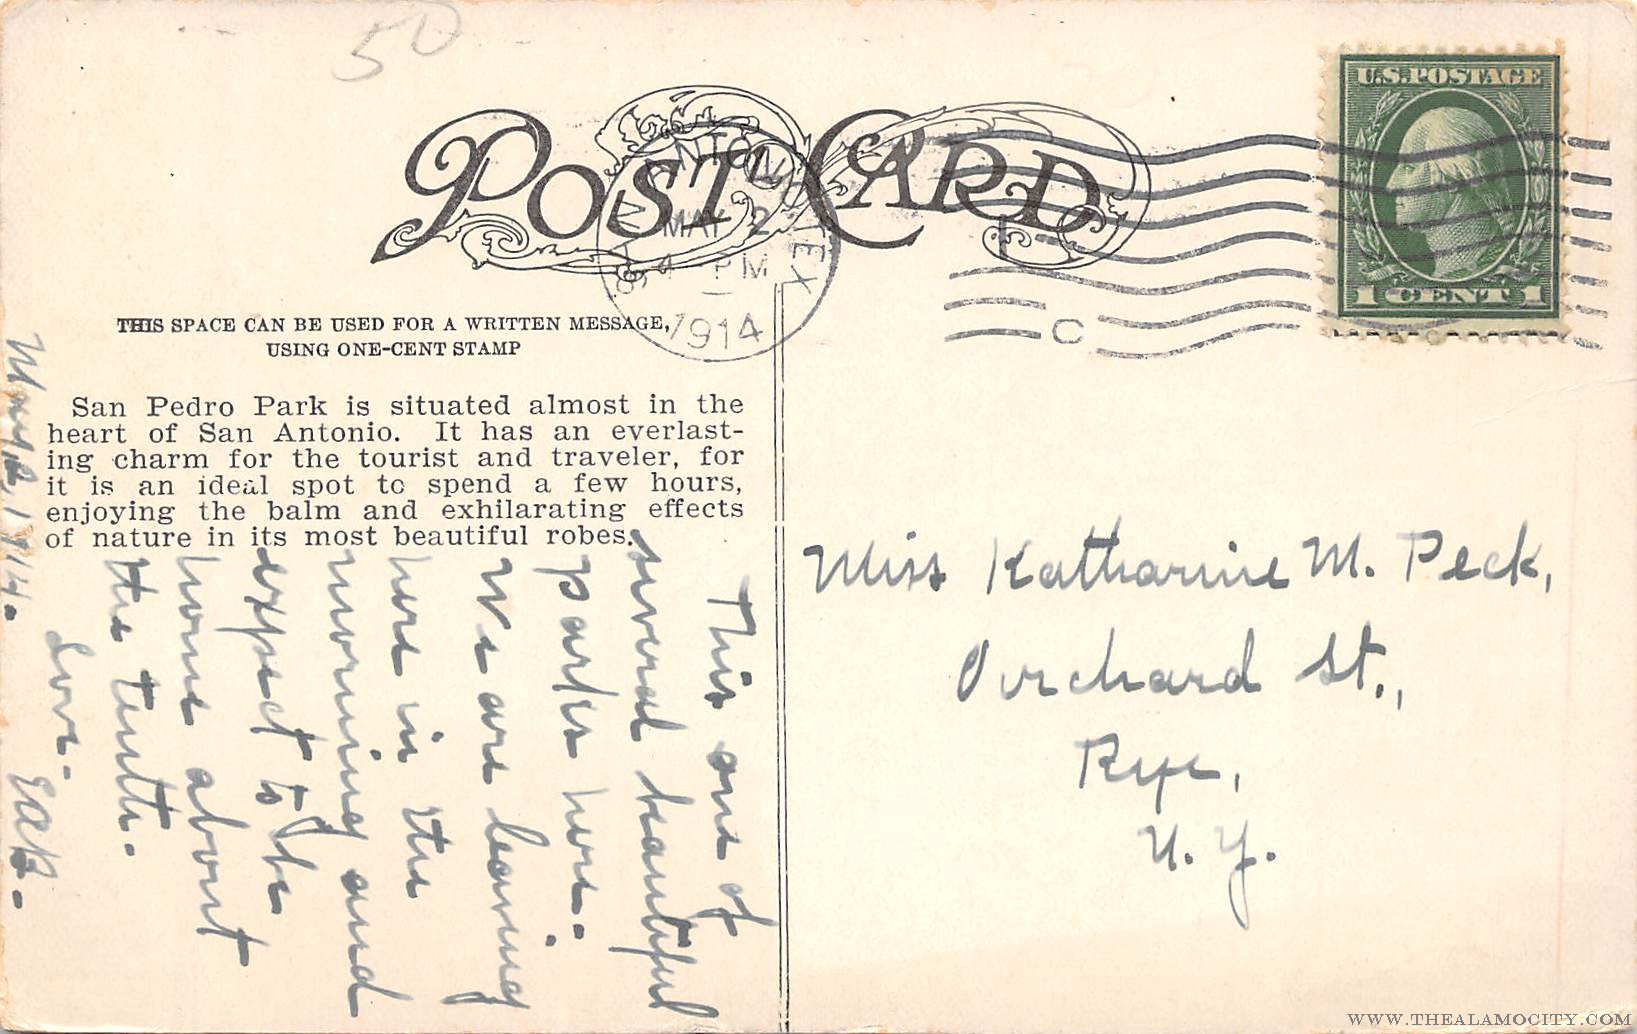 50
POST CARD
SAN ANTONIO TEX
MAY 2
4 - PM
1914
U.S. POSTAGE
1 CENT 1
C
THIS SPACE CAN BE USED FOR A WRITTEN MESSAGE,
USING ONE-CENT STAMP
San Pedro Park is situated almost in the
heart of San Antonio. It has an everlast-
ing charm for the tourist and traveler, for
it is an ideal spot to spend a few hours,
enjoying the balm and exhilarating effects
of nature in its most beautiful robes.
This one of
several beautiful
parks here.
We are leaving
here in the
morning and
expect to be
home about
the tenth.
Love.
EAB.
May 2, 1914.
Miss Katharine M. Peck,
Orchard St.,
Rye,
N. Y.
WWW.THEALAMOCITY.COM